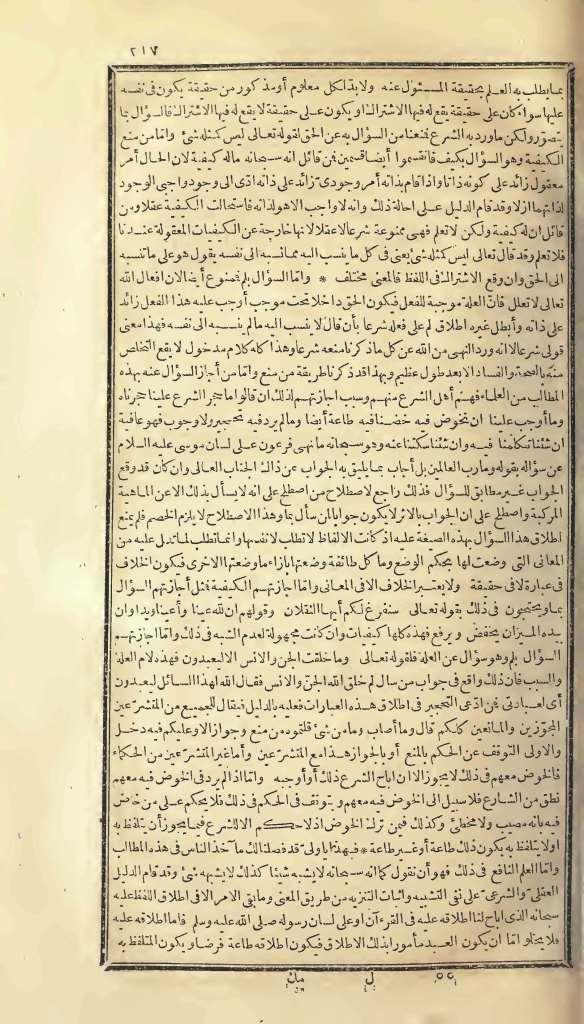 ٢١٧
بما يطلب به العلم بحقيقة المسئول عنه ولا بد لكل معلوم أو مذكور من حقيقة يكون فى نفسه
عليها سواء كان على حقيقة يقع له فيها الاشتراك أو يكون على حقيقة لا يقع له فيها الاشتراك فالسؤال بما
يتصور ولكن ما ورد به الشرع فمنعنا من السؤال به عن الحق لقوله تعالى ليس كمثله شئ وأما من منع
الكيفية وهو السؤال بكيف فانقسموا أيضا قسمين فمن قائل انه سبحانه ماله كيفية لان الحال أمر
معقول زائد على كونه ذاتا واذا قام بذاته أمر وجودى زائد على ذاته أدّى الى وجود واجبى الوجود
لذاتهما أزلا وقد قام الدليل على احالة ذلك وانه لا واجب الا هو لذاته فاستحالت الكيفية عقلا ومن
قائل ان له كيفية ولكن لا تعلم فهى ممنوعة شرعا لا عقلا لانها خارجة عن الكيفيات المعقولة عندنا
فلا تعلم وقد قال تعالى ليس كمثله شئ يعنى فى كل ما ينسب اليه مما نسبه الى نفسه يقول هو على ما تنسبه
الى الحق وان وقع الاشتراك فى اللفظ فالمعنى مختلف * وأما السؤال بلم فممنوع أيضا لان أفعال الله
تعالى لا تعلل فانّ العلة موجبة للفعل فيكون الحق داخلا تحت موجب أوجب عليه هذا الفعل زائد
على ذاته وأبطل غيره اطلاق لم على فعله شرعا بأن قال لا ينسب اليه مالم ينسبه الى نفسه فهذا معنى
قولى شرعا لا انه ورد النهى من الله عن كل ما ذكرنا منعه شرعا وهذا كله كلام مدخول لا يقع التخلص
منه بالصحة والفساد الا بعد طول عظيم وبهذا قد ذكرنا طريقة من منع وأما من أجاز السؤال عنه بهذه
المطالب من العلماء فهم أهل الشرع منهم وسبب اجازتهم لذلك ان قالوا ما حجر الشرع علينا حجرناه
وما أوجب علينا ان نخوض فيه خضنا فيه طاعة أيضا ومالم يرد فيه تحجير ولا وجوب فهو عافية
ان شئنا تكلمنا فيه وان شئنا سكتنا عنه وهو سبحانه ما نهى فرعون على لسان موسى عليه السلام
عن سؤاله بقوله وما رب العالمين بل أجاب بما يليق به الجواب عن ذاك الجناب العالى وان كان قد وقع
الجواب غير مطابق للسؤال فذلك راجع لاصطلاح من اصطلح على انه لا يسأل بذلك الا عن الماهية
المركبة واصطلح على ان الجواب بالاثر لا يكون جوابا لمن سأل بما وهذا الاصطلاح لا يلزم الخصم فلم يمنع
اطلاق هذا السؤال بهذه الصفة عليه اذ كانت الالفاظ لا تطلب لانفسها وانما تطلب لما تدل عليه من
المعانى التى وضعت لها بحكم الوضع وما كل طائفة وضعتها بازاء ما وضعتها الاخرى فيكون الخلاف
فى عبارة لا فى حقيقة ولا يعتبر الخلاف الا فى المعانى وأما اجازتهم الكيفية فمثل أجازتهم السؤال
بما ويحتجون فى ذلك بقوله تعالى سنفرغ لكم أيها الثقلان وقولهم ان لله عينا وأعينا ويدا وان
بيده الميزان يخفض ويرفع فهذه كلها كيفيات وان كانت مجهولة لعدم الشبه فى ذلك وأما اجازتهم
السؤال بلم وهو سؤال عن العلة فلقوله تعالى وما خلقت الجن والانس الا ليعبدون فهذه لام العلة
والسبب فان ذلك واقع فى جواب من سال لم خلق الله الجن والانس فقال الله لهذا السائل ليعبدون
أى لعبادتى فمن ادّعى التحجير فى اطلاق هذه العبارات فعليه بالدليل فيقال للجميع من المتشرعين
المجوّزين والمانعين كلكم قال وما أصاب وما من شئ قلتموه من منع وجواز الا وعليكم فيه دخل
والاولى التوقف عن الحكم بالمنع أو بالجواز هذا مع المتشرعين وأما غير المتشرعين من الحكماء
فالخوض معهم فى ذلك لا يجوز الا ان اباح الشرع ذلك أو أوجبه وأما اذ الم يرد فى الخوض فيه معهم
نطق من الشارع فلا سبيل الى الخوض فيه معهم ويتوقف فى الحكم فى ذلك فلا يحكم على من خاض
فيه بانه مصيب ولا مخطئ وكذلك فيمن ترك الخوض اذ لا حكم الا للشرع فيما يجوز أن يتلفظ به
أو لا يتلفظ به يكون ذلك طاعة أو غير طاعة * فهذا يا ولى قد فصلنا لك مآخذ الناس فى هذه المطالب
وأما العلم النافع فى ذلك فهو أن نقول كما انه سبحانه لا يشبه شيئا كذلك لا يشبهه شئ وقد قام الدليل
العقلى والشرعى على نفى التشبيه واثبات التنزيه من طريق المعنى وما بقى الامر الا فى اطلاق اللفظ عليه
سبحانه الذى اباح لنا اطلاقه عليه فى القرءآن أو على لسان رسوله صلى الله عليه وسلم فأما اطلاقه عليه
فلا يخلو اما ان يكون العبد مأمورا بذلك الاطلاق فيكون اطلاقه طاعة فرضا ويكون المتلفظ به
٥٥ ل مك